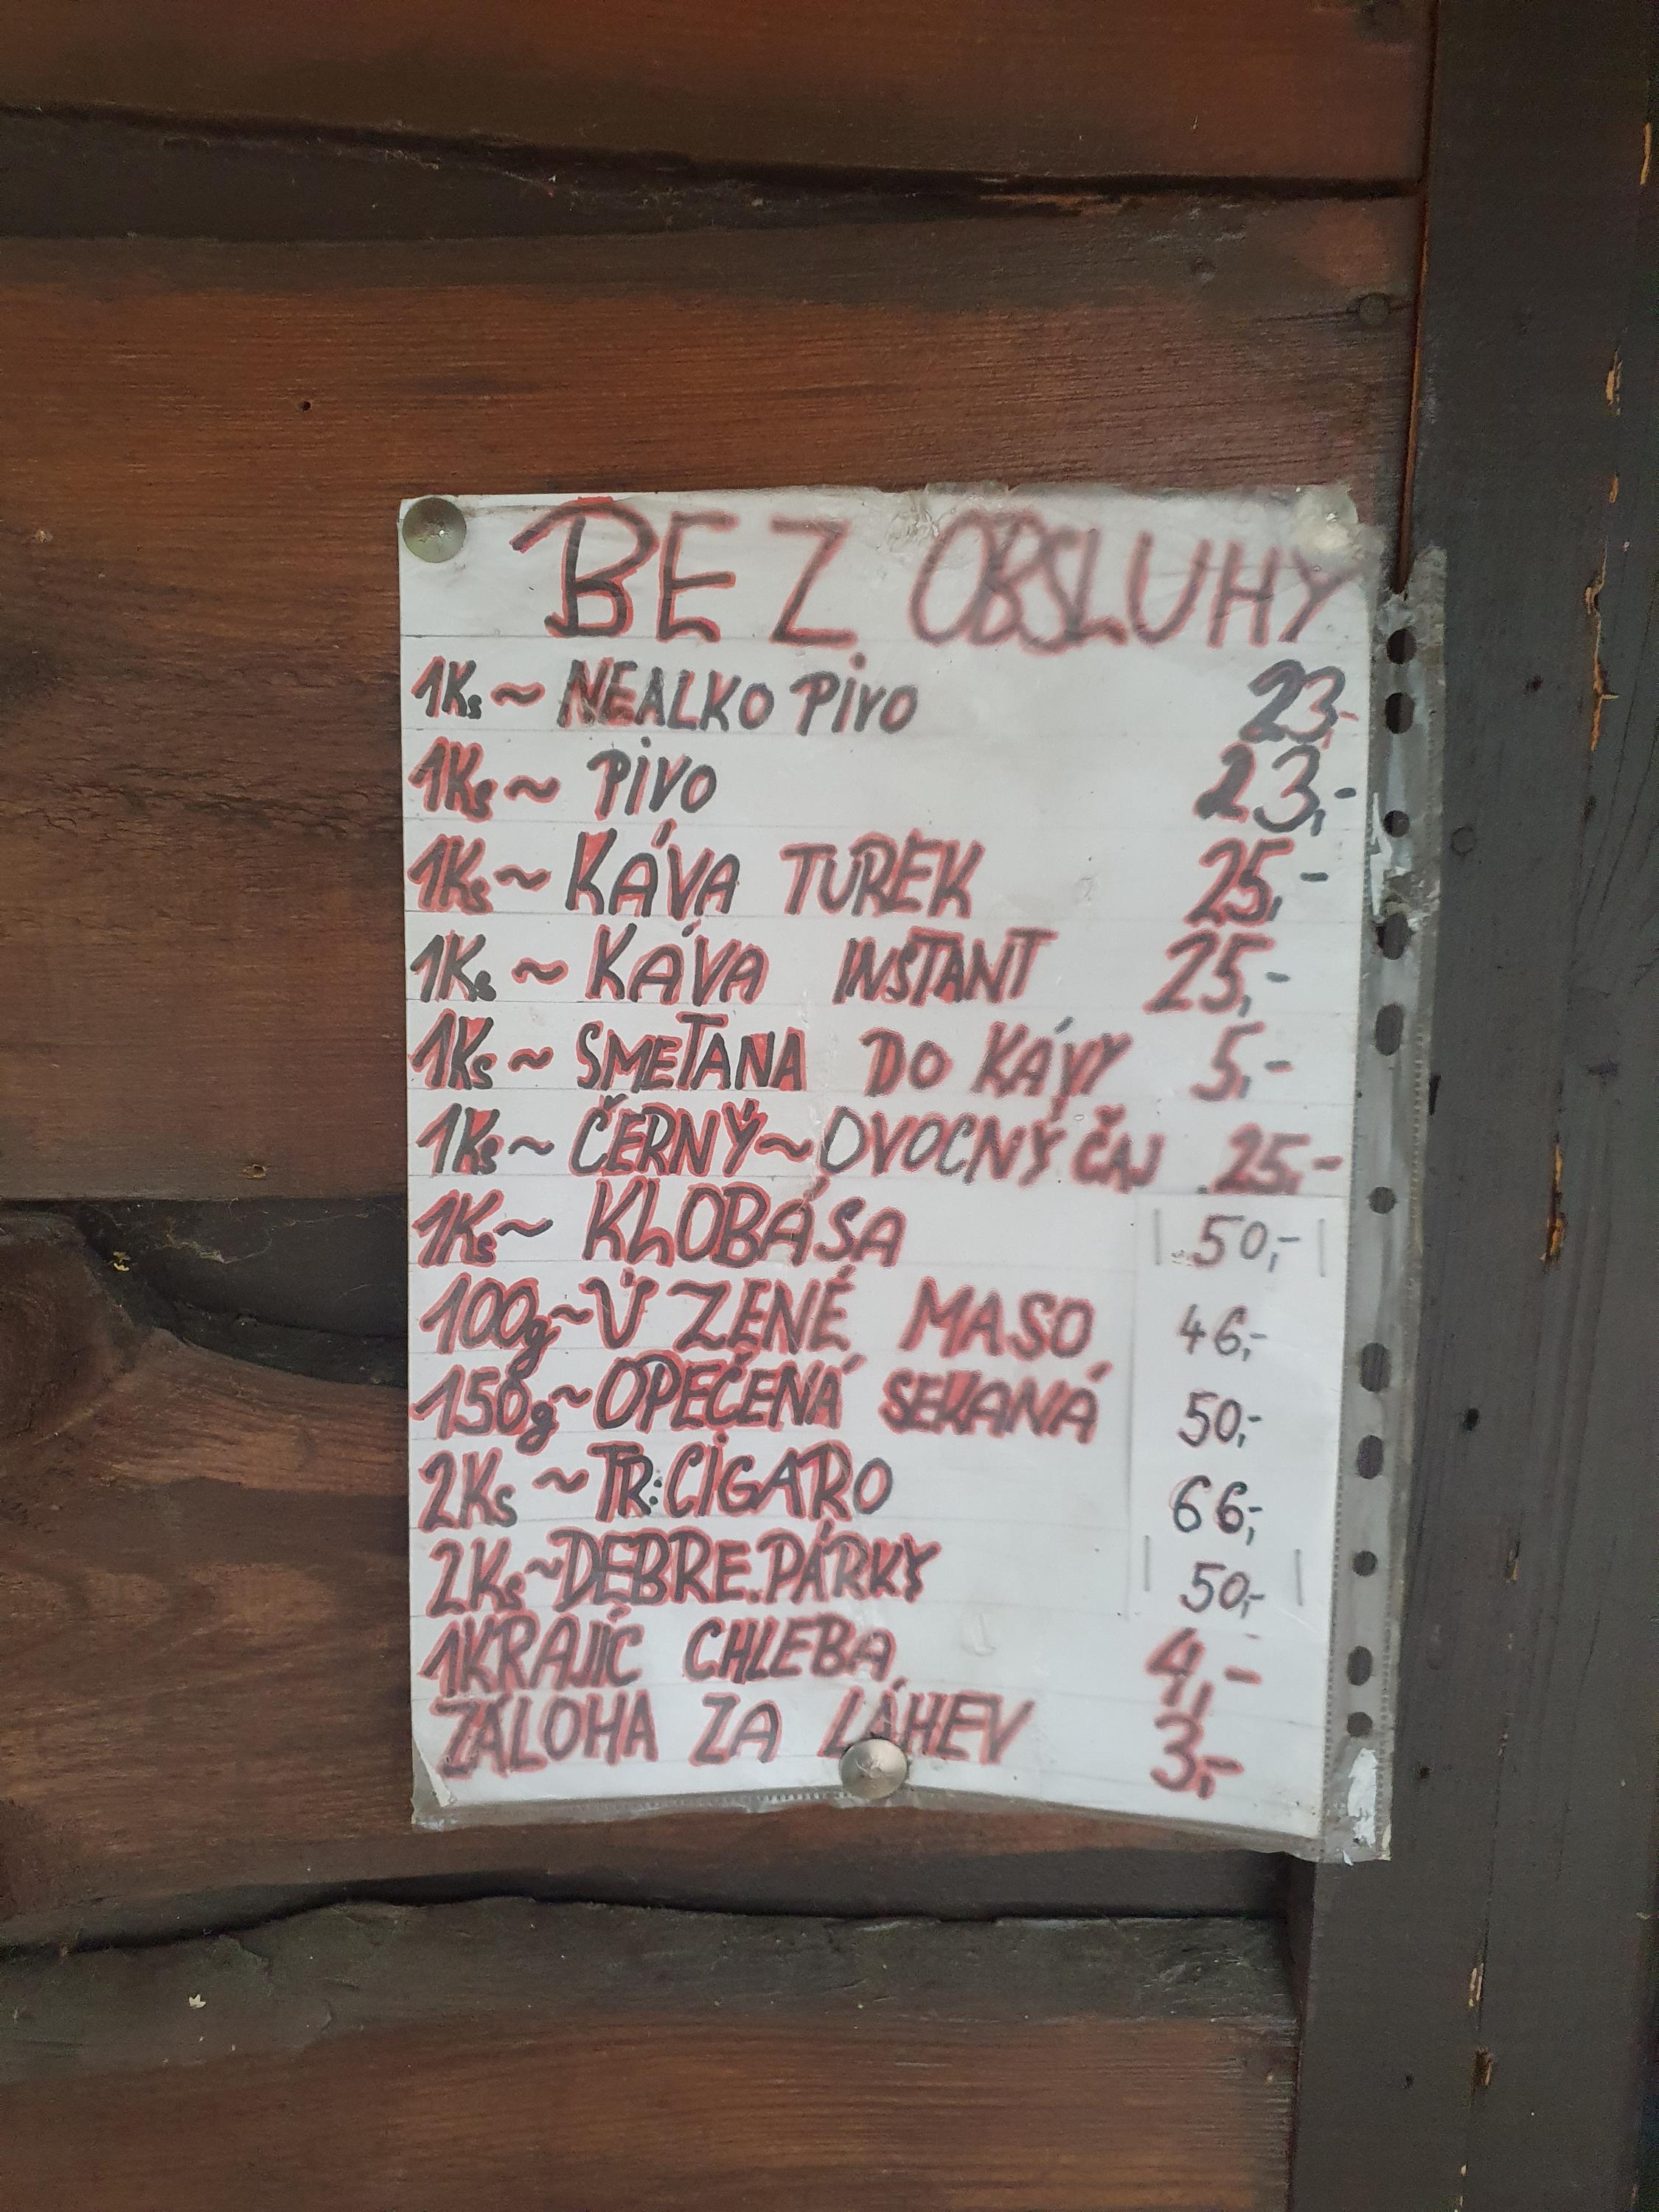 BEZ OBSLUHY
1Ks ~ NEALKO PIVO 23,-
1Ks ~ PIVO 23,-
1Ks ~ KÁVA TUREK 25,-
1Ks ~ KÁVA INSTANT 25,-
1Ks ~ SMETANA DO KÁVY 5,-
1Ks ~ ČERNÝ ~ OVOCNÝ ČAJ 25,-
1Ks ~ KLOBÁSA 50,-
100g ~ UZENÉ MASO 46,-
150g ~ OPEČENÁ SEKANÁ 50,-
2Ks ~ TR: CIGARO 66,-
2Ks ~ DEBRE. PÁRKY 50,-
1KRAJÍC CHLEBA 4,-
ZÁLOHA ZA LÁHEV 3,-